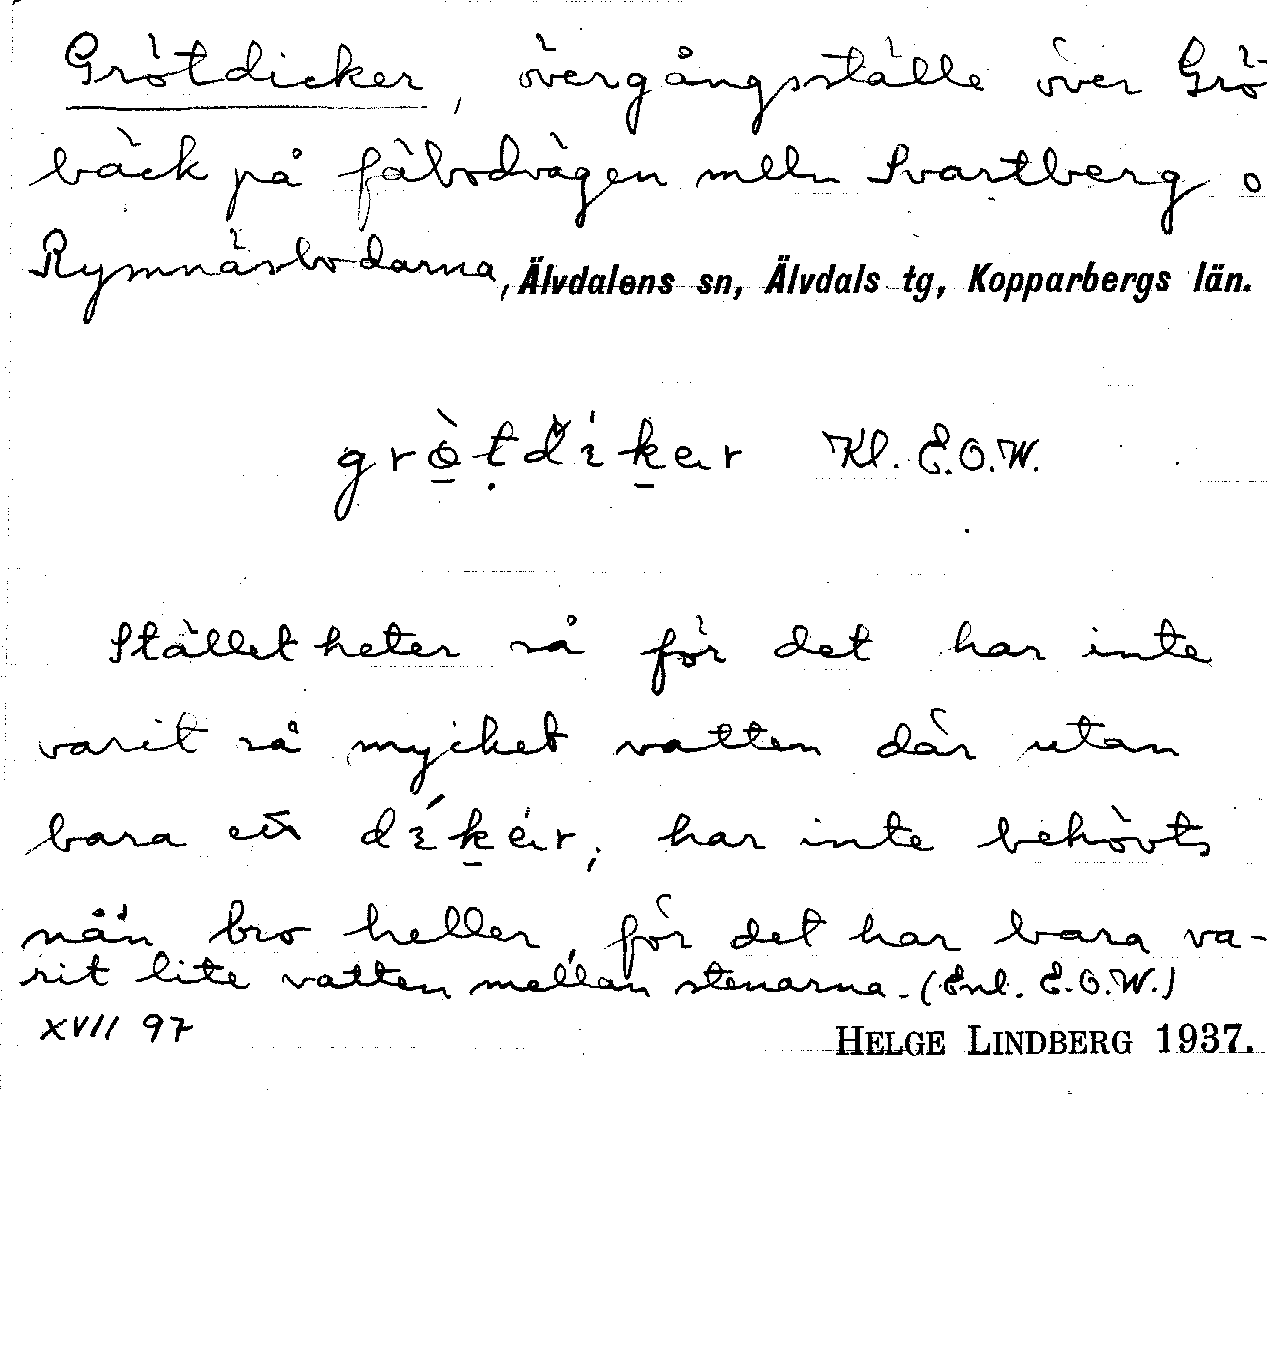 Grötdicker, övergångsställe över Grö
bäck på fäbodvägen melln Svartberg o
Rymnäsbodarna, Älvdalens sn, Älvdals tg, Kopparbergs län.
grötdiker Kl. E.O.W.
Stället heter så för det har inte
varit så mycket vatten där utan
bara ett diker; har inte behövts
nån bro heller, för det har bara va-
rit lite vatten mellan stenarna. (Enl. E.O.W.)
XVII 97
HELGE LINDBERG 1937.